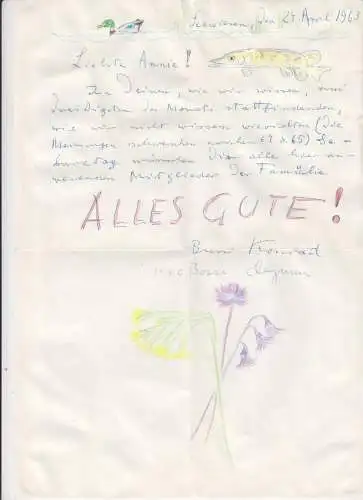 Seewiesen, den 27 April 1963
Liebste Annie!
Zu Deinem, wie wir wissen, am
zweidigsten des Monats stattfindenden,
wie wir nicht wissen wievielten (Die
Meinungen schwanken zwischen 19 & 65) Ge-
burtstag wünschen Dir alle hier an-
wesenden Mitglieder der Familie
ALLES GUTE!